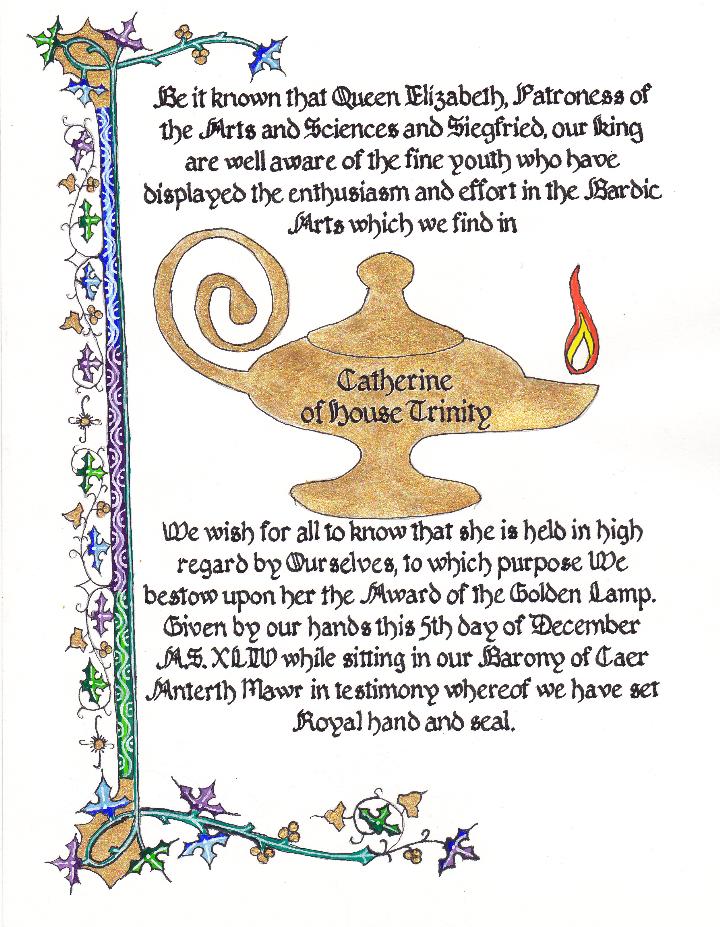 Be it known that Queen Elizabeth, Patroness of
the Arts and Sciences and Siegfried, our king
are well aware of the fine youth who have
displayed the enthusiasm and effort in the Bardic
Arts which we find in
Catherine
of House Trinity
We wish for all to know that she is held in high
regard by Ourselves, to which purpose We
bestow upon her the Award of the Golden Lamp.
Given by our hands this 5th day of December
A.S. XLIV while sitting in our Barony of Caer
Anterth Mawr in testimony whereof we have set
Royal hand and seal.